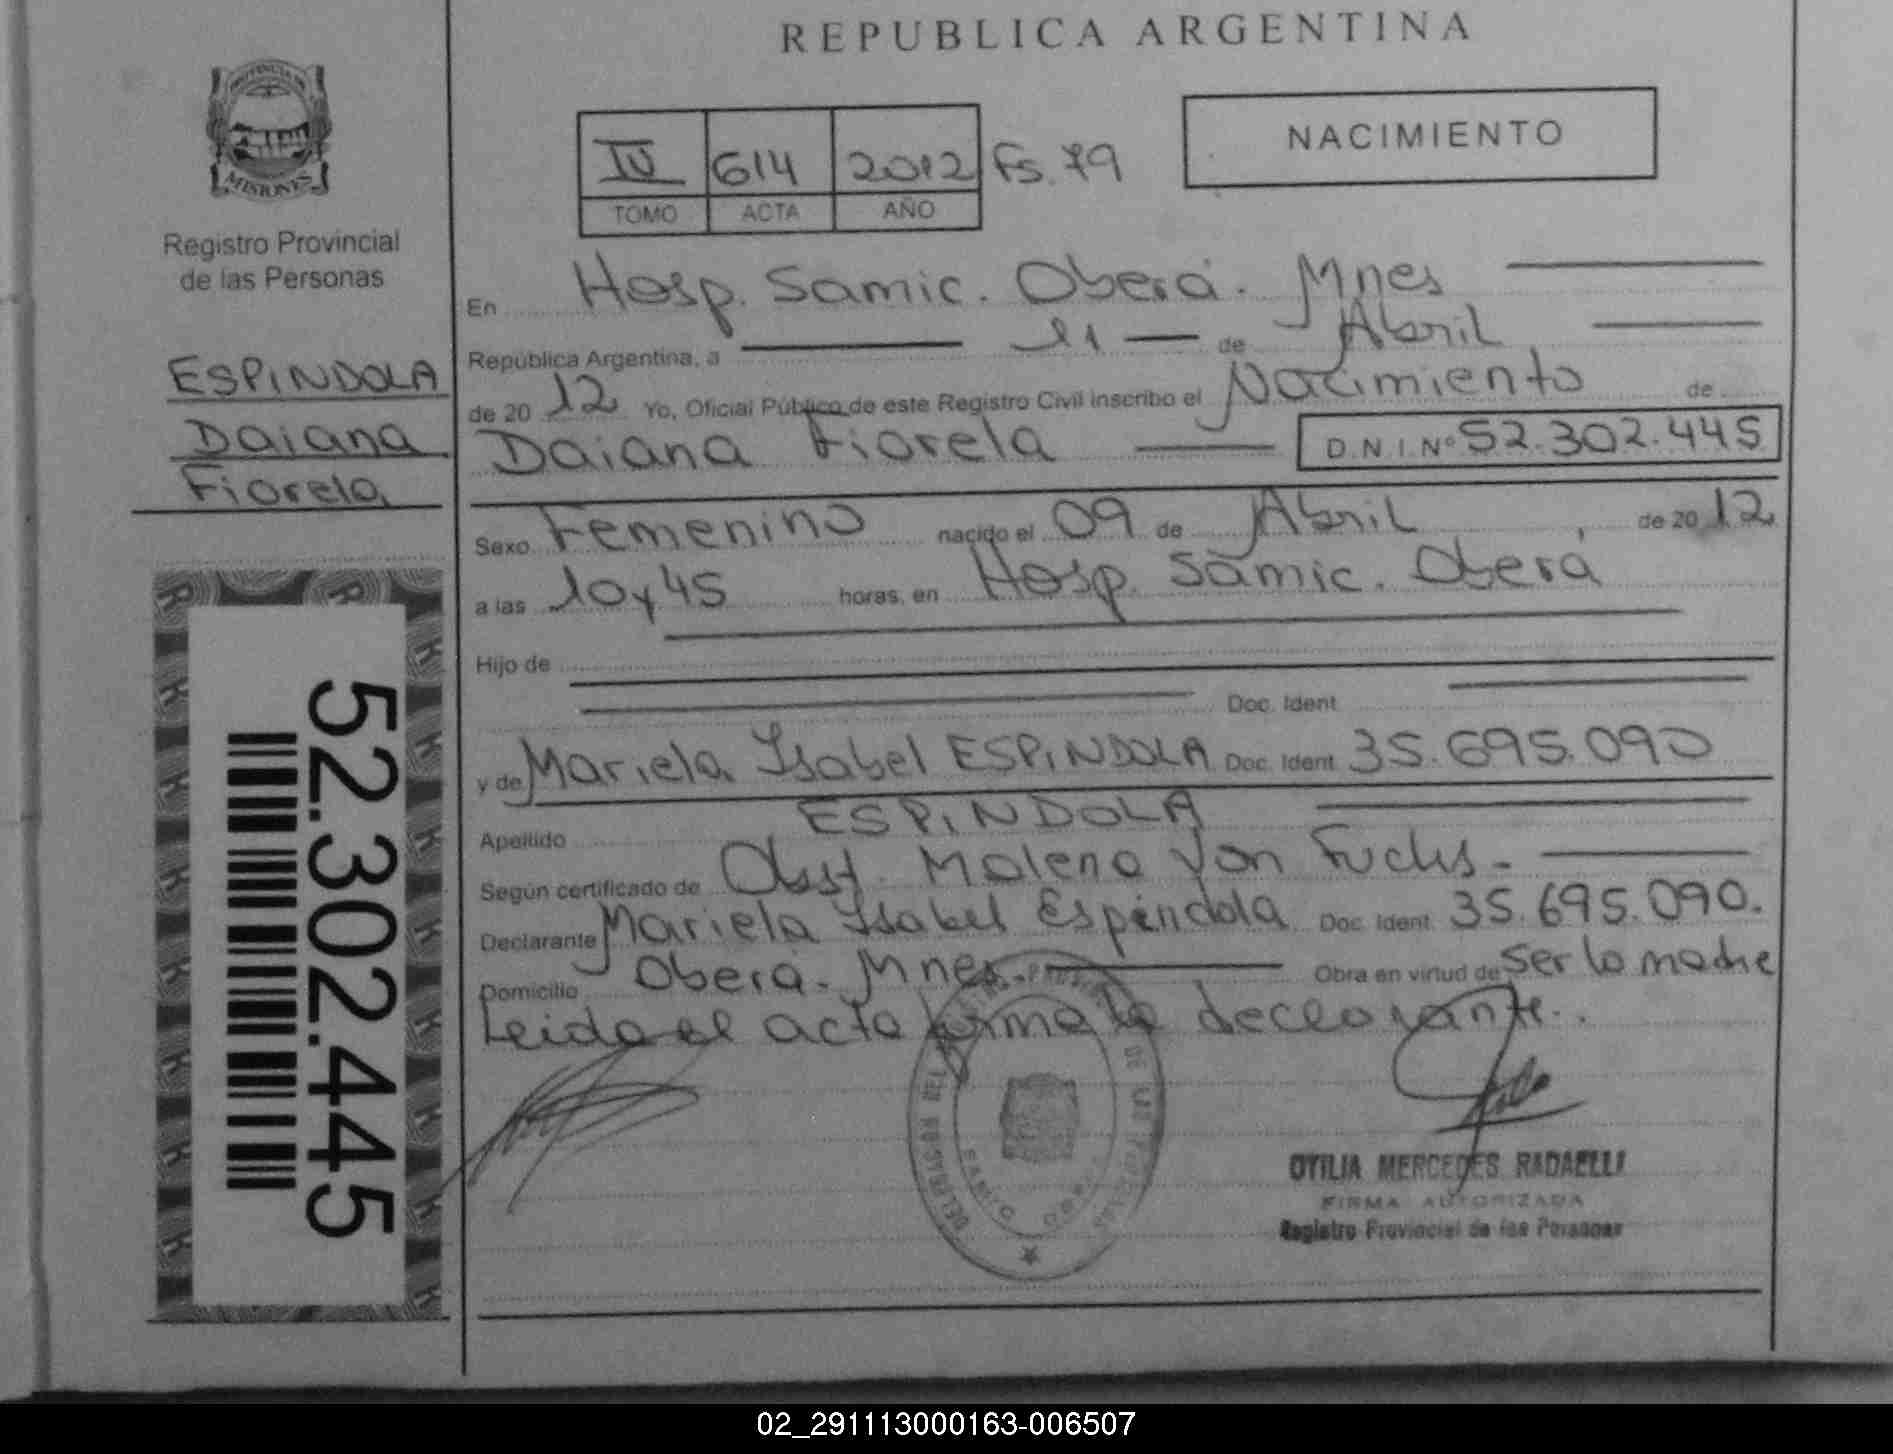 REPUBLICA ARGENTINA
PROVINCIA DE
MISIONES
Registro Provincial
de las Personas
ESPINDOLA
Daiana
Fiorela
52.302.445
IV 614 2012 Fs. 79
TOMO ACTA AÑO
NACIMIENTO
En Hosp. Samic. Oberá. Mnes
República Argentina, a 11 de Abril
de 20 12 Yo, Oficial Público de este Registro Civil inscribo el Nacimiento de
Daiana Fiorela D.N.I. Nº 52.302.445
Sexo Femenino nacido el 09 de Abril de 20 12
a las 10 y 45 horas, en Hosp. Samic. Oberá
Hijo de
Doc. Ident.
y de Mariela Isabel ESPINDOLA Doc. Ident. 35.695.090
Apellido ESPINDOLA
Según certificado de Obst. Molena Von Fuchs.-
Declarante Mariela Isabel Espíndola Doc. Ident. 35.695.090.
Domicilio Oberá. Mnes. Obra en virtud de Ser la madre
Leida el acta firma la declarante.
DE LAS
SAMIC
OTILIA MERCEDES RADAELLI
FIRMA AUTORIZADA
Registro Provincial de las Personas
02_291113000163-006507